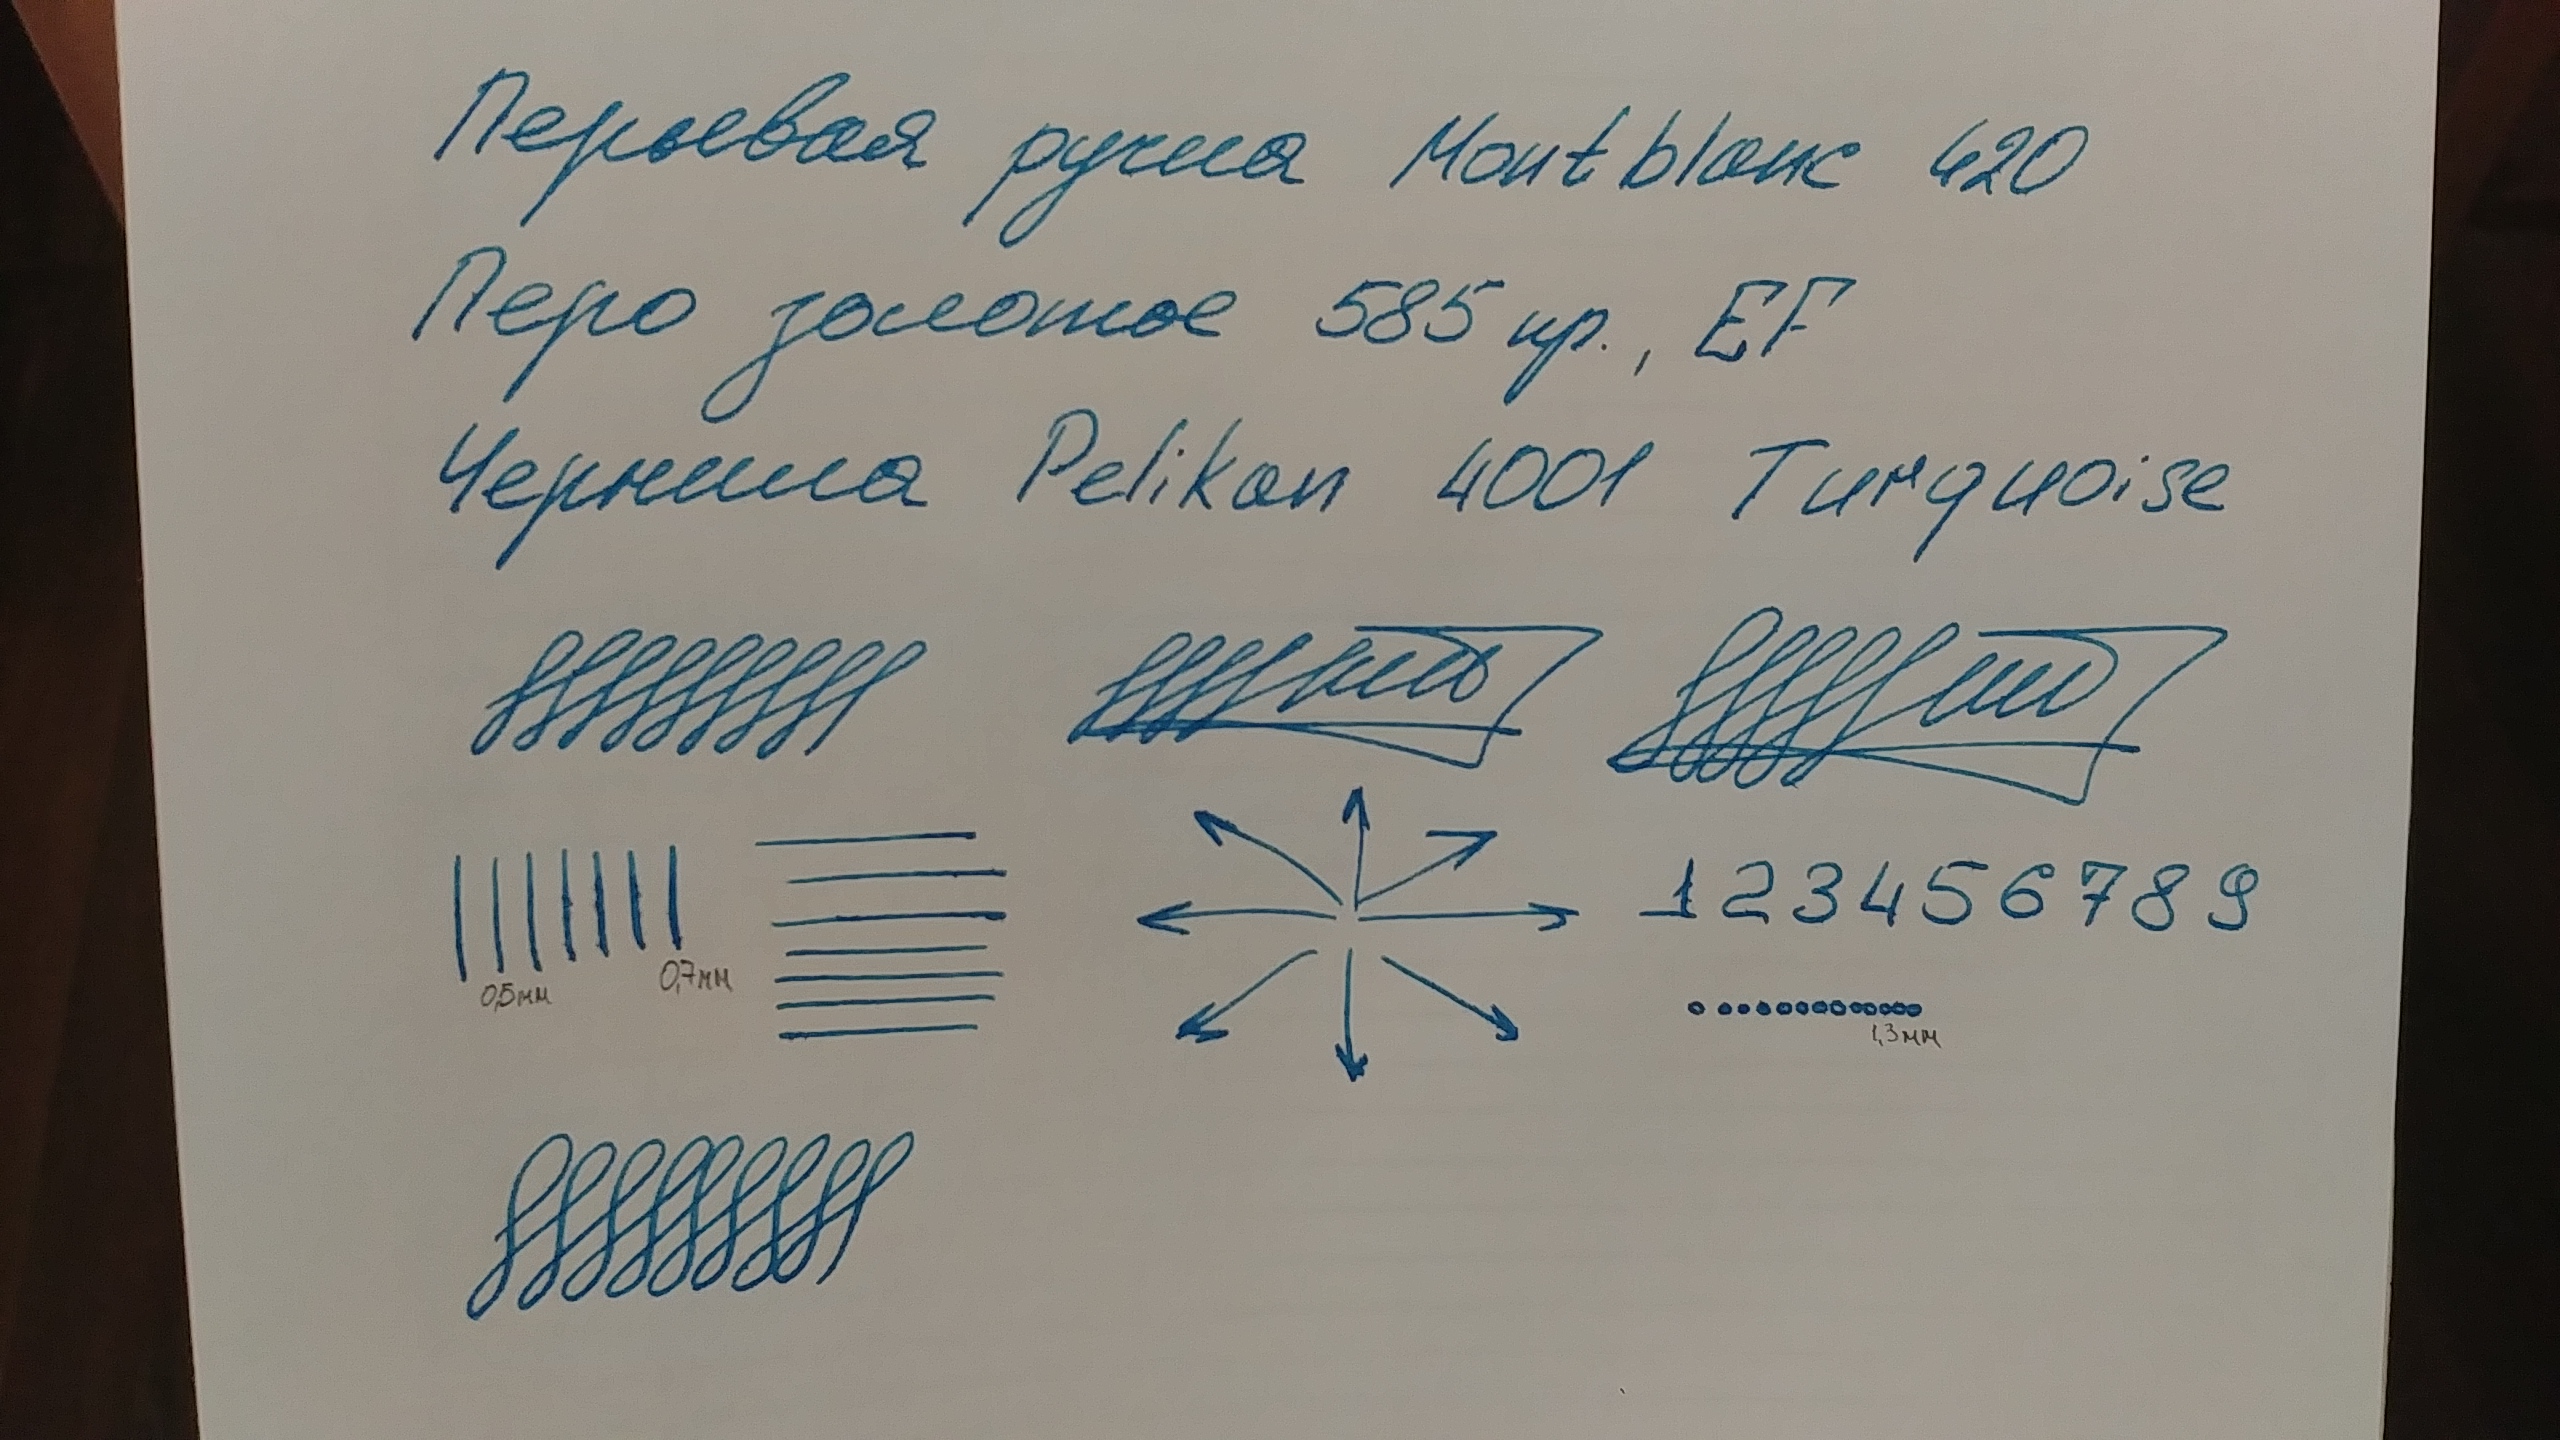 Перьевая ручка Montblanc 420
Перо золотое 585 пр., EF
Чернила Pelikan 4001 Turquoise
1 2 3 4 5 6 7 8 9
0,5мм 0,7мм
1,3мм